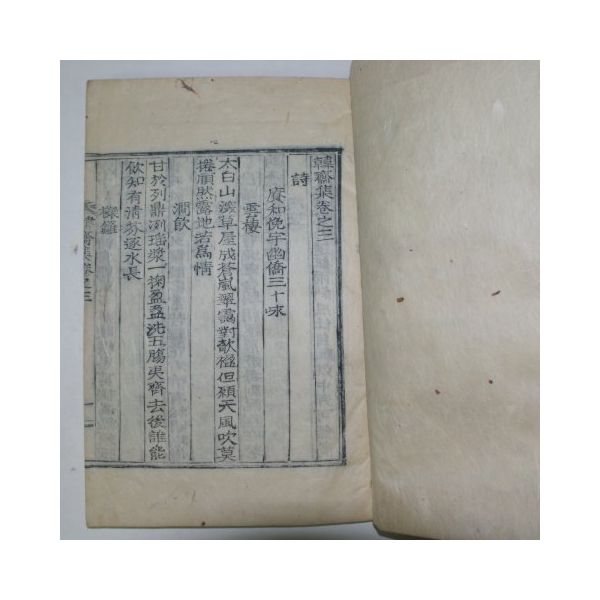 韓齋集卷之三
詩
賡和俛宇幽僑三十咏
雲棲
太白山深草屋成蒼嵐翠靄對欹楹但願天風吹莫
捲頎然露地若爲情
澗飮
甘於列鼎冽瑤漿一掬盈盈洗五膓夷齊去後誰能
飮知有淸芬逐水長
蘿
齋集卷之三